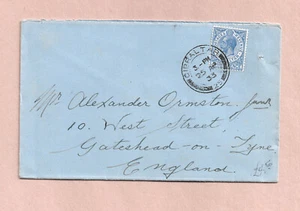 GIBRALTAR
Mr Alexander Ormston, Junr
10. West Street,
Gateshead-on-Tyne
England